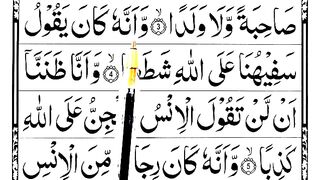 صَاحِبَةً وَّلَا وَلَدًا ۙ۝۳ وَّاَنَّهٗ كَانَ يَقُوْلُ
سَفِيْهُنَا عَلَى اللّٰهِ شَطَطًا ۙ۝۴ وَّاَنَّا ظَنَنَّاۤ
اَنْ لَّنْ تَقُوْلَ الْاِنْسُ وَالْجِنُّ عَلَى اللّٰهِ
كَذِبًا ۙ۝۵ وَّاَنَّهٗ كَانَ رِجَالٌ مِّنَ الْاِنْسِ